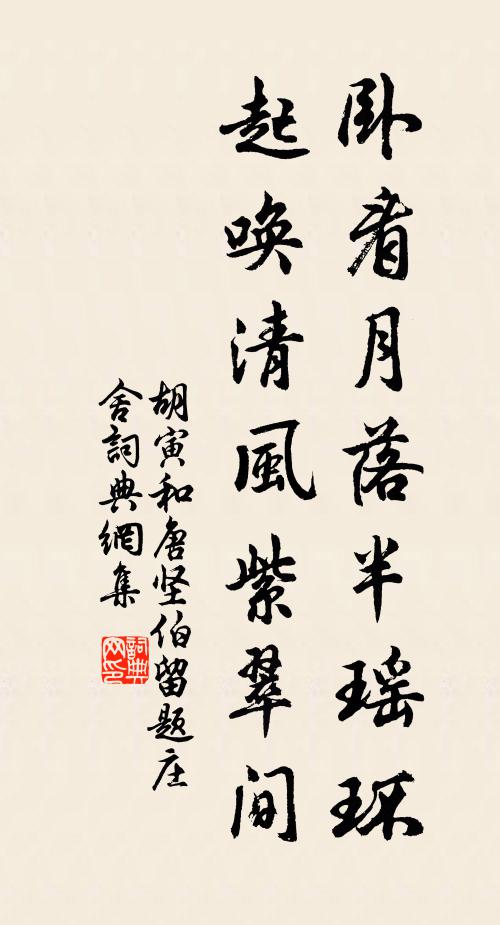 卧看月落半瑶环
起唤清風紫翠间
胡寅和唐坚伯留题庄
舍詞典網集
詞典
网印